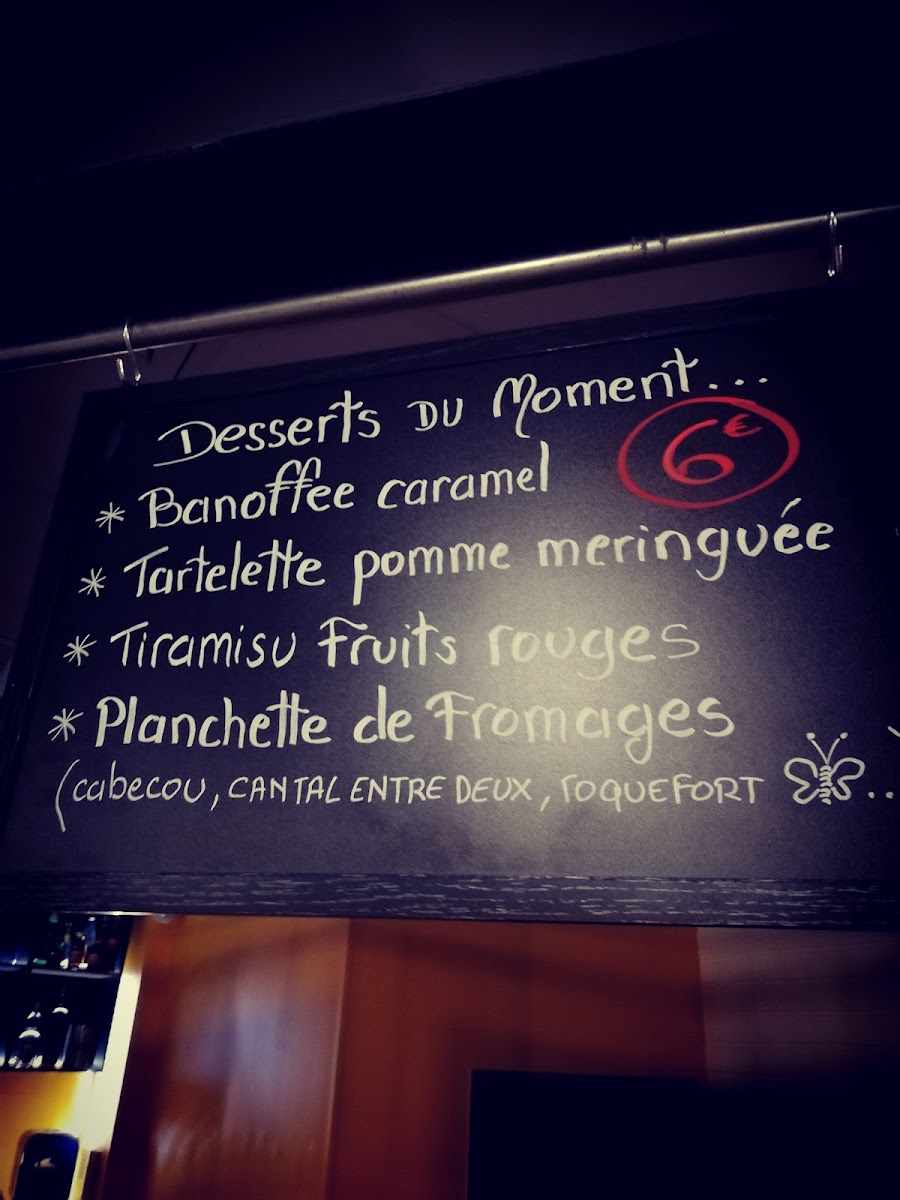 Desserts DU Moment...
6€
* Banoffee caramel
* Tartelette pomme meringuée
* Tiramisu Fruits rouges
* Planchette de Fromages
(cabecou, CANTAL ENTRE DEUX, roquefort ..